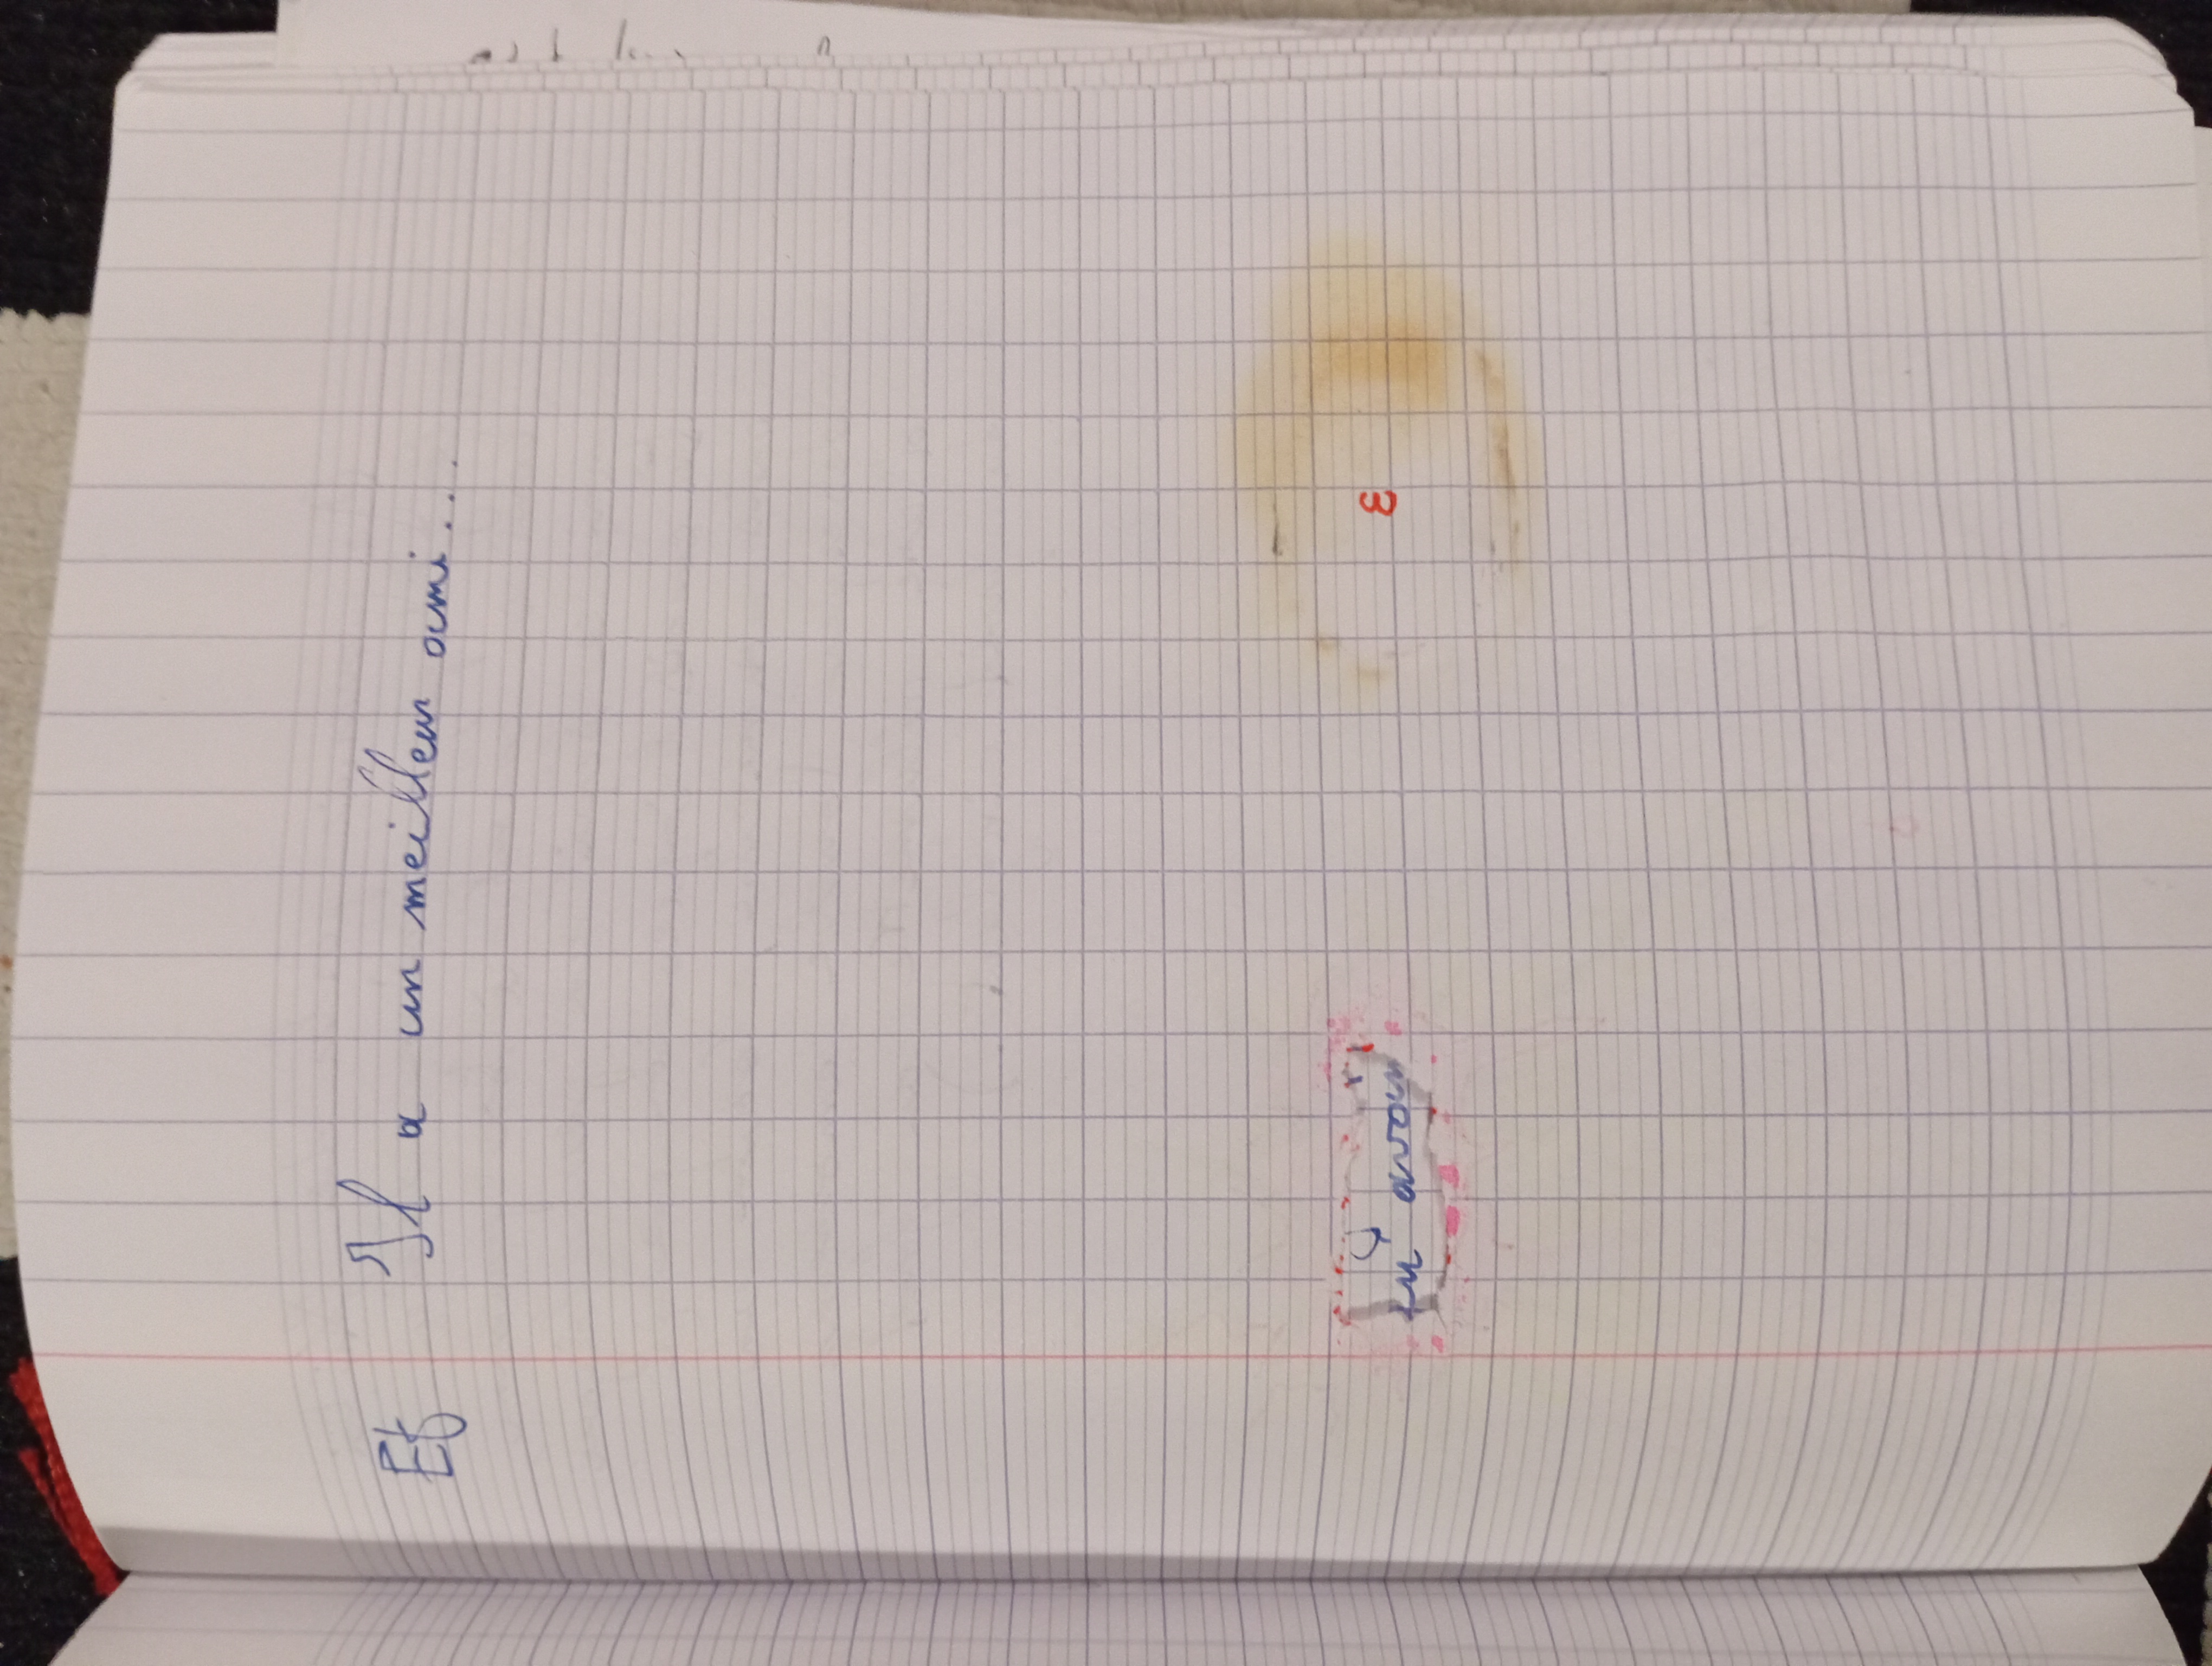 Et Il a un meilleur ami...
tu avai
ε